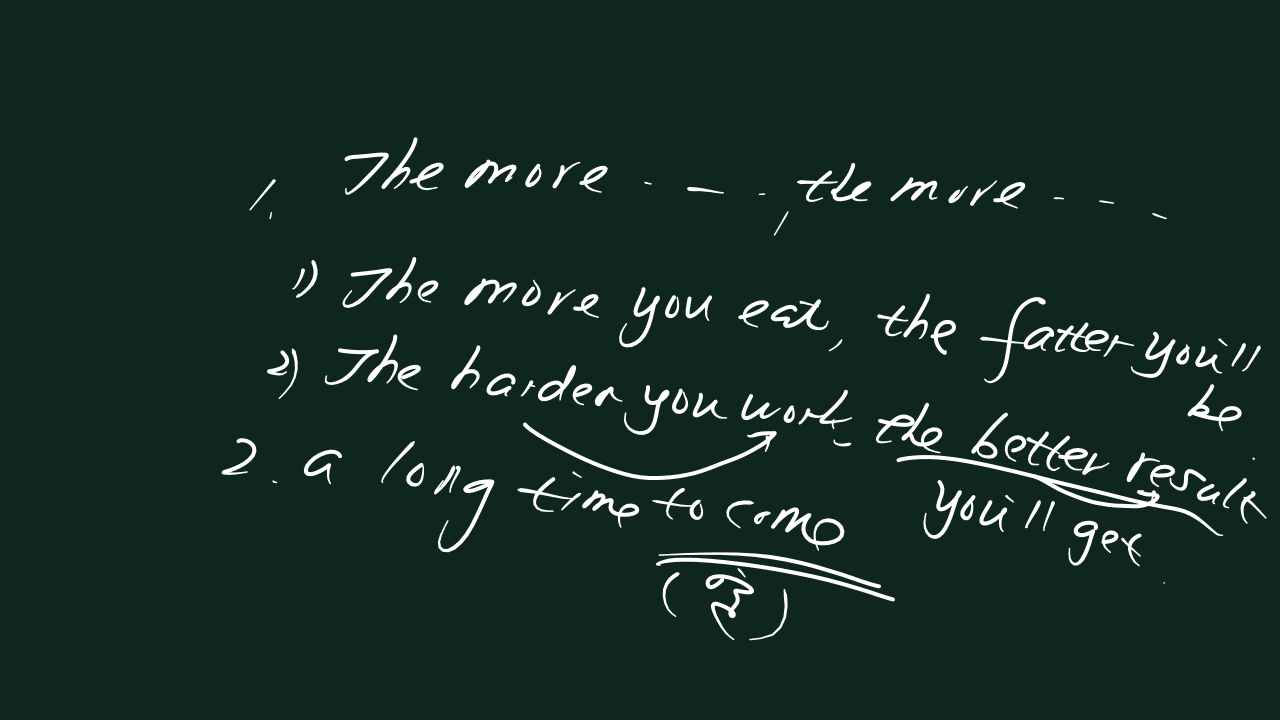 1. The more - - -, the more - - -
1) The more you eat, the fatter you'll
be
2) The harder you work, the better result
you'll get
2. a long time to come